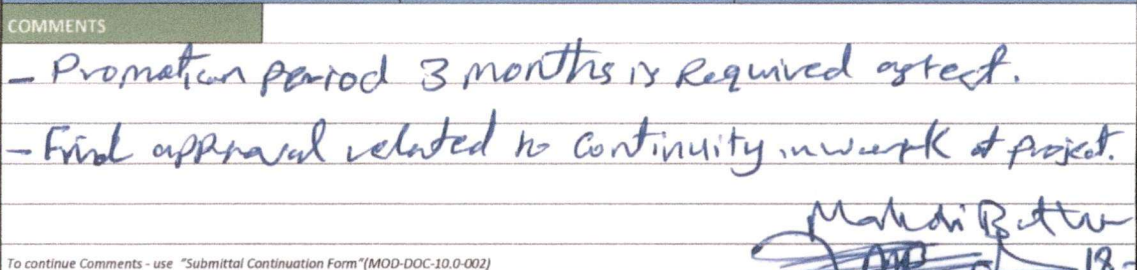 COMMENTS
- Promation period 3 months is Required as test.
- Final approval related to Continuity in work at project.
To continue Comments - use "Submittal Continuation Form"(MOD-DOC-10.0-002)
18-